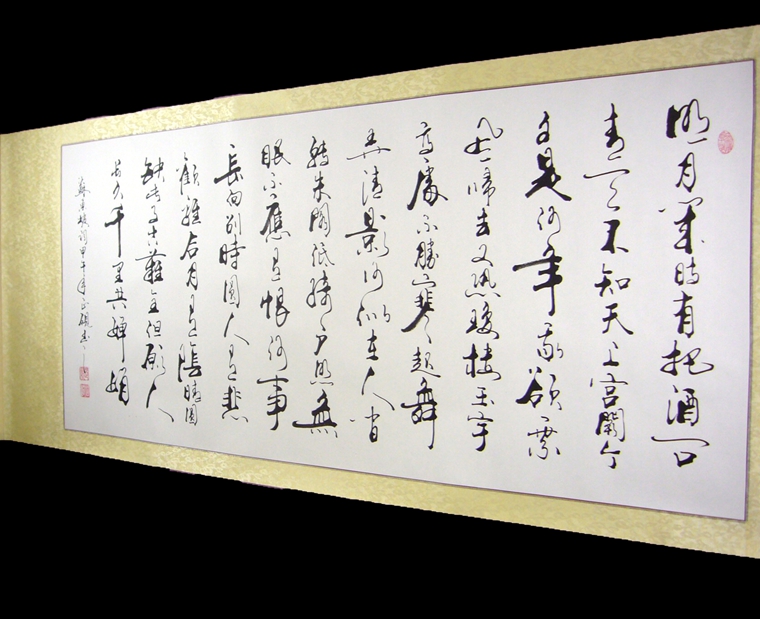 明月幾時有把酒問
青天不知天上宮闕今
夕是何年我欲乘
風歸去又恐瓊樓玉宇
高處不勝寒起舞
弄清影何似在人間
轉朱閣低綺戶照無
眠不應有恨何事
長向別時圓人有悲
歡離合月有陰晴圓
缺此事古難全但願人
長久千里共嬋娟
蘇東坡詞甲午年